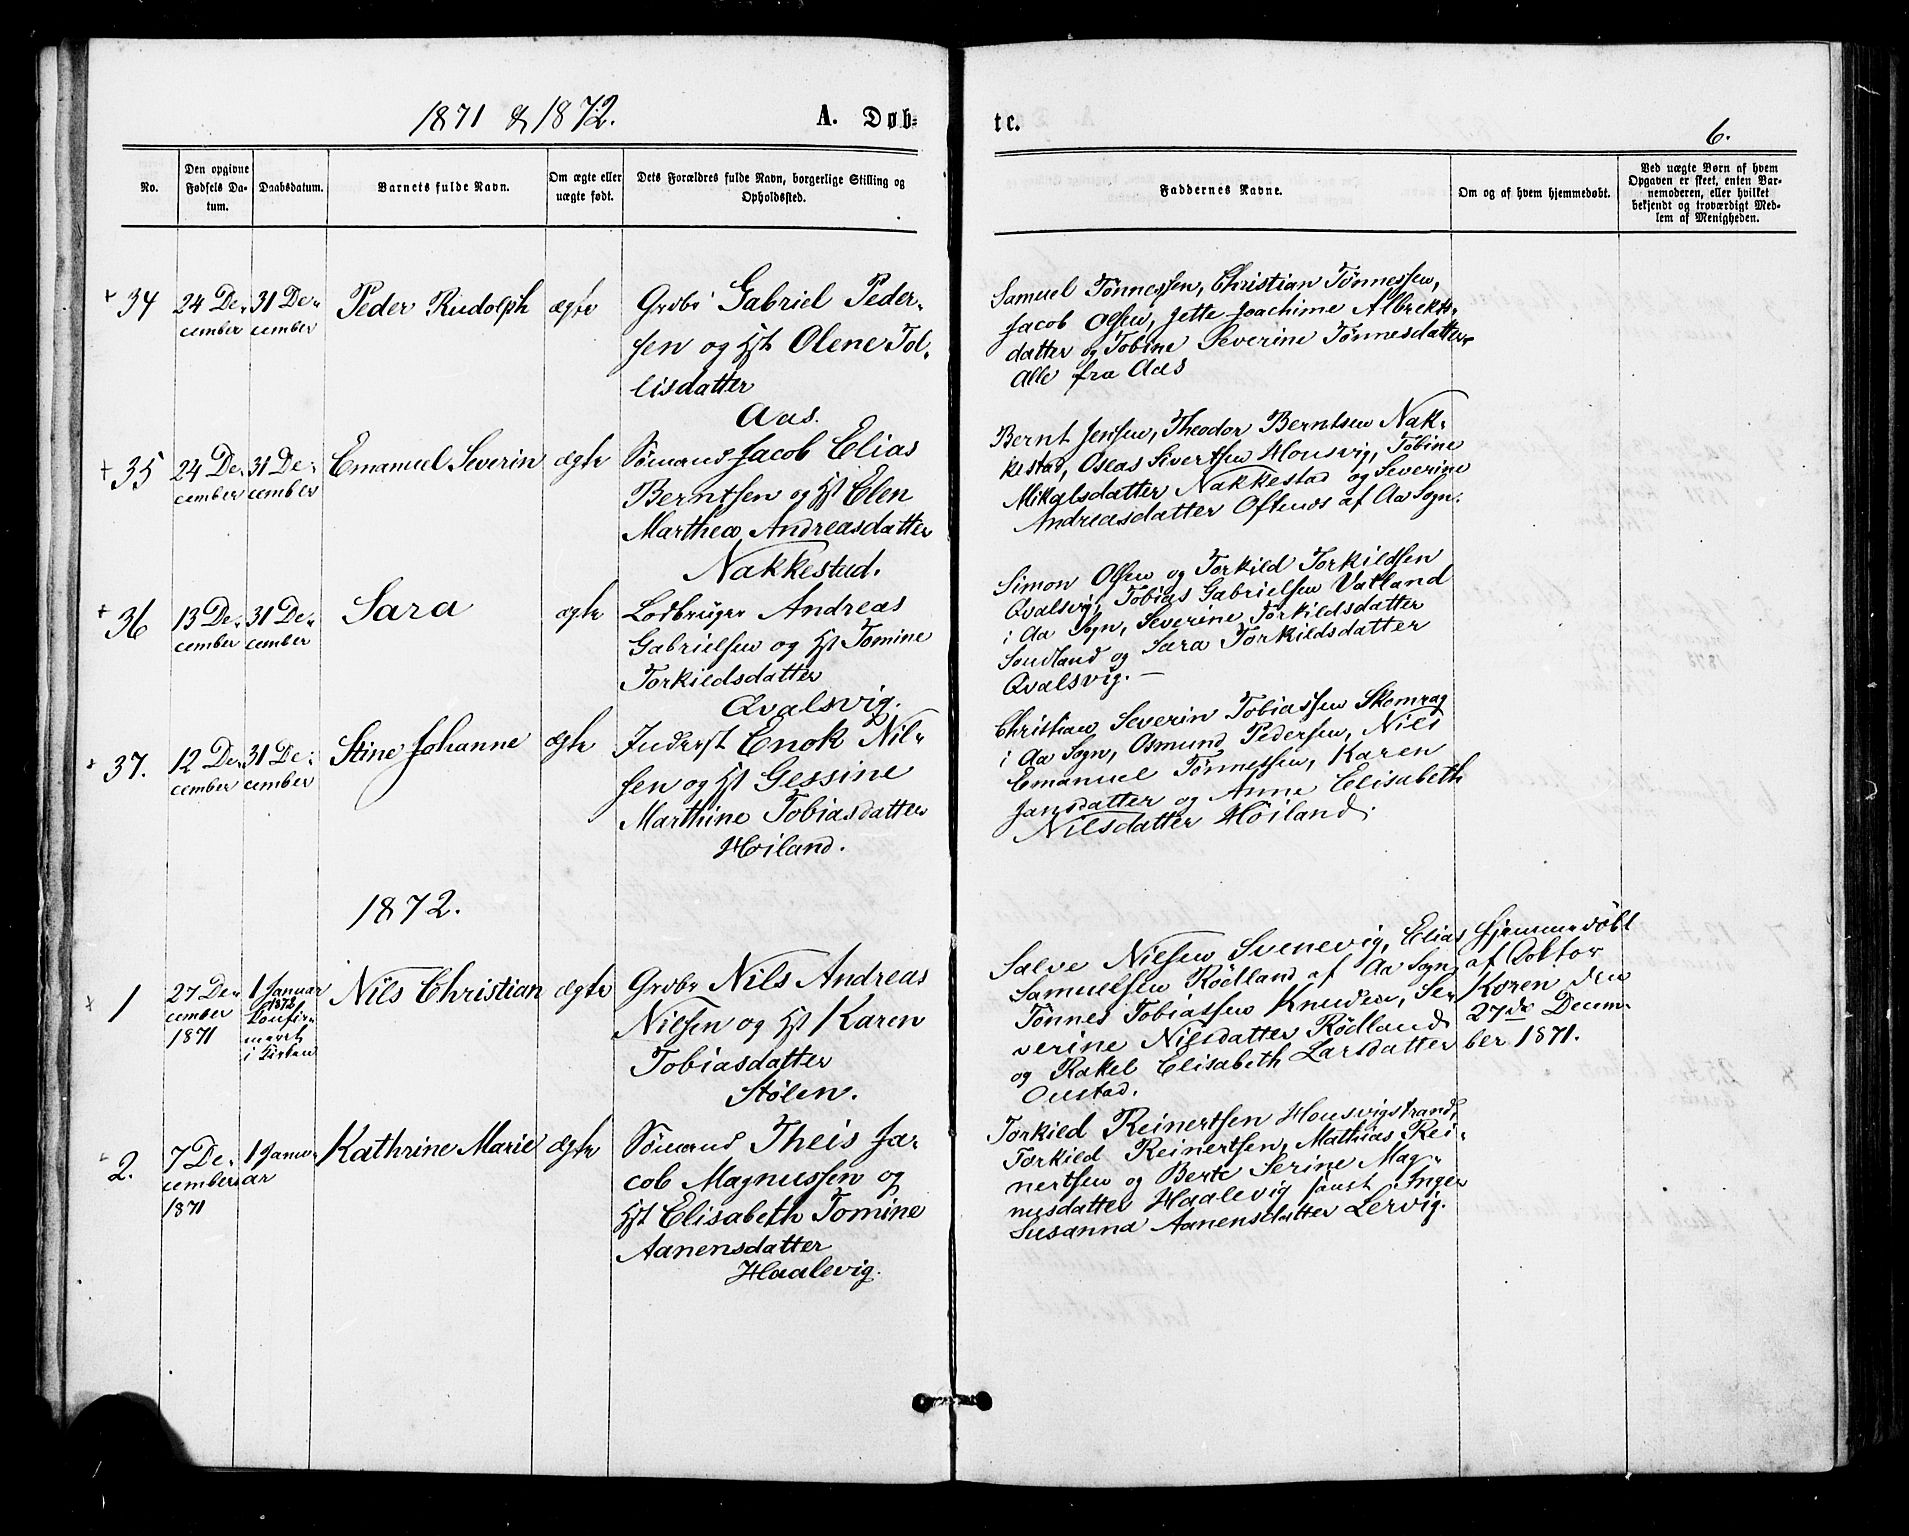 1871 & 1872.
A. Døb-
te.
6.
No.
Den opgivne
Fødsels Da-
tum.
Daabsdatum.
Barnets fulde Navn.
Om ægte eller
uægte født.
Dets Forældres fulde Navn, borgerlige Stilling og
Opholdssted.
Faddernes Navne.
Om og af hvem hjemmedøbt.
Ved uægte Børn af hvem
Opgaven er skeet, enten Bar-
nemoderen, eller hvilket
bekjendt og troværdigt Med-
lem af Menigheden.
+ 34
24 De-
cember
31 De-
cember
Peder Rudolph
ægte
Grdbr Gabriel Peder-
sen og Hst Olene Tol-
lisdatter
Aas.
Samuel Tønnessen, Christian Tønnessen,
Jacob Olsen, Jette Joachime Albrekts-
datter og Tobine Severine Tønnesdatter
Alle fra Aas
+ 35
24 De-
cember
31 De-
cember
Emanuel Severin
ægte
Sømand Jacob Elias
Berntsen og Hst Elen
Marthea Andreasdatter
Nakkestad.
Bernt Jensen, Theodor Berntsen Nak-
kestad, Oseas Sivertsen Housvig, Tobine
Mikalsdatter Nakkestad og Severine
Andreasdatter Oftenæs af Aa Sogn.
+ 36
13 De-
cember
31 De-
cember
Sara
ægte
Lodbruger Andreas
Gabrielsen og Hst Tomine
Torkildsdatter
Qvalsvig.
Simon Olsen og Torkild Torkildsen
Qvalsvig, Tobias Gabrielsen Vatland
i Aa Sogn, Severine Torkildsdatter
Sondland og Sara Torkildsdatter
Qvalsvig. —
+ 37.
12 De-
cember
31 De-
cember
Stine Johanne
ægte
Inderst Enok Nil-
sen og Hst Gessine
Marthine Tobiasdatter
Høiland.
Christian Severin Tobiassen Skomrag
i Aa Sogn, Osmund Pedersen, Nils
Emanuel Tønnessen, Karen
Jansdatter og Anne Elisabeth
Nilsdatter Høiland.
1872.
1
27 De-
cember
1871
1 Januar
1872
Confir-
meret
i Kirken
Nils Christian
ægte
Grdbr Nils Andreas
Nilsen og Hst Karen
Tobiasdatter
Stølen.
Salve Nielsen Svenevig, Elias
Samuelsen Rødland af Aa Sogn
Tønnes Tobiassen Knuden, Se-
verine Nilsdatter Rødland
og Rakel Elisabeth Larsdatter
Oustad.
Hjemmedøbt
af Doktor
Koren den
27de Decem-
ber 1871.
2.
7 De-
cember
1871
1 Janu-
ar
Kathrine Marie
ægte
Sømand Theis Ja-
cob Magnussen og
Hst Elisabeth Tomine
Aanensdatter
Haalevig.
Torkild Reinertsen Housvigstrand,
Torkild Reinertsen, Mathias Rei-
nertsen og Berte Serine Mag-
nusdatter Haalevig samt Inger
Susanna Aanensdatter Lervig.